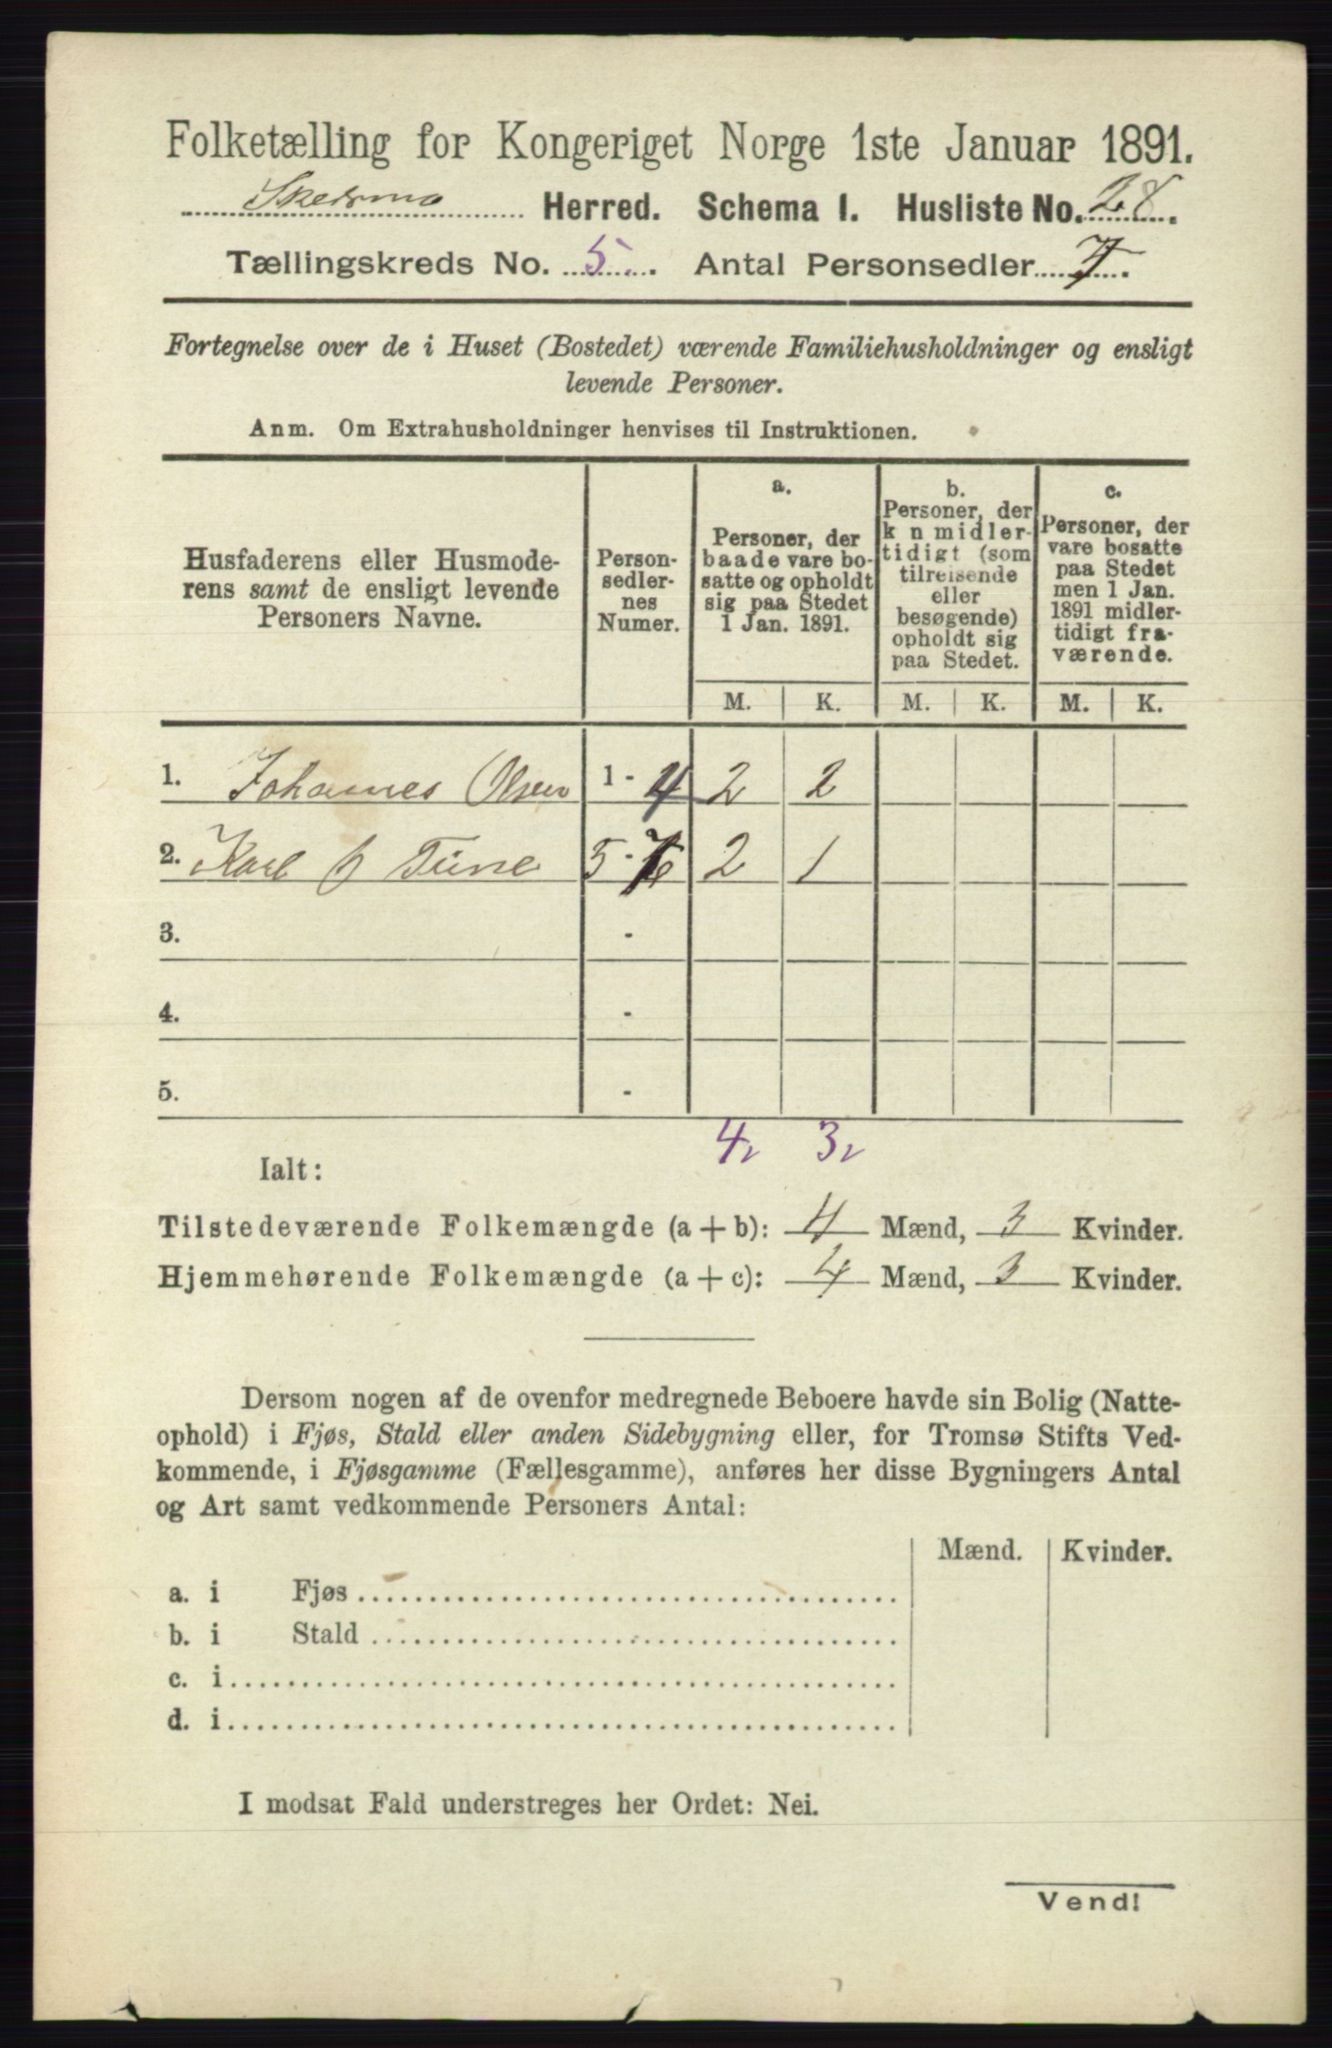 Folketælling for Kongeriget Norge 1ste Januar 1891.
Skedsmo Herred. Schema I. Husliste No. 28.
Tællingskreds No. 5. Antal Personsedler 7.
Fortegnelse over de i Huset (Bostedet) værende Familiehusholdninger og ensligt
levende Personer.
Anm. Om Extrahusholdninger henvises til Instruktionen.
Husfaderens eller Husmode-
rens samt de ensligt levende
Personers Navne.
Person-
sedler-
nes
Numer.
a.
Personer, der
baade vare bo-
satte og opholdt
sig paa Stedet
1 Jan. 1891.
b.
Personer, der
k n midler-
tidigt (som
tilreisende
eller
besøgende)
opholdt sig
paa Stedet.
c.
Personer, der
vare bosatte
paa Stedet
men 1 Jan.
1891 midler-
tidigt fra-
værende.
M. K. M. K. M. K.
1. Johannes Olsen 1 - 4 2 2
2. Karl J Tune 5 - 7 2 1
3. -
4. -
5. -
4 3
Ialt:
Tilstedeværende Folkemængde (a + b): 4 Mænd, 3 Kvinder.
Hjemmehørende Folkemængde (a + c): 4 Mænd, 3 Kvinder.
Dersom nogen af de ovenfor medregnede Beboere havde sin Bolig (Natte-
ophold) i Fjøs, Stald eller anden Sidebygning eller, for Tromsø Stifts Ved-
kommende, i Fjøsgamme (Fællesgamme), anføres her disse Bygningers Antal
og Art samt vedkommende Personers Antal:
Mænd. Kvinder.
a. i Fjøs
b. i Stald
c. i
d. i
I modsat Fald understreges her Ordet: Nei.
Vend!